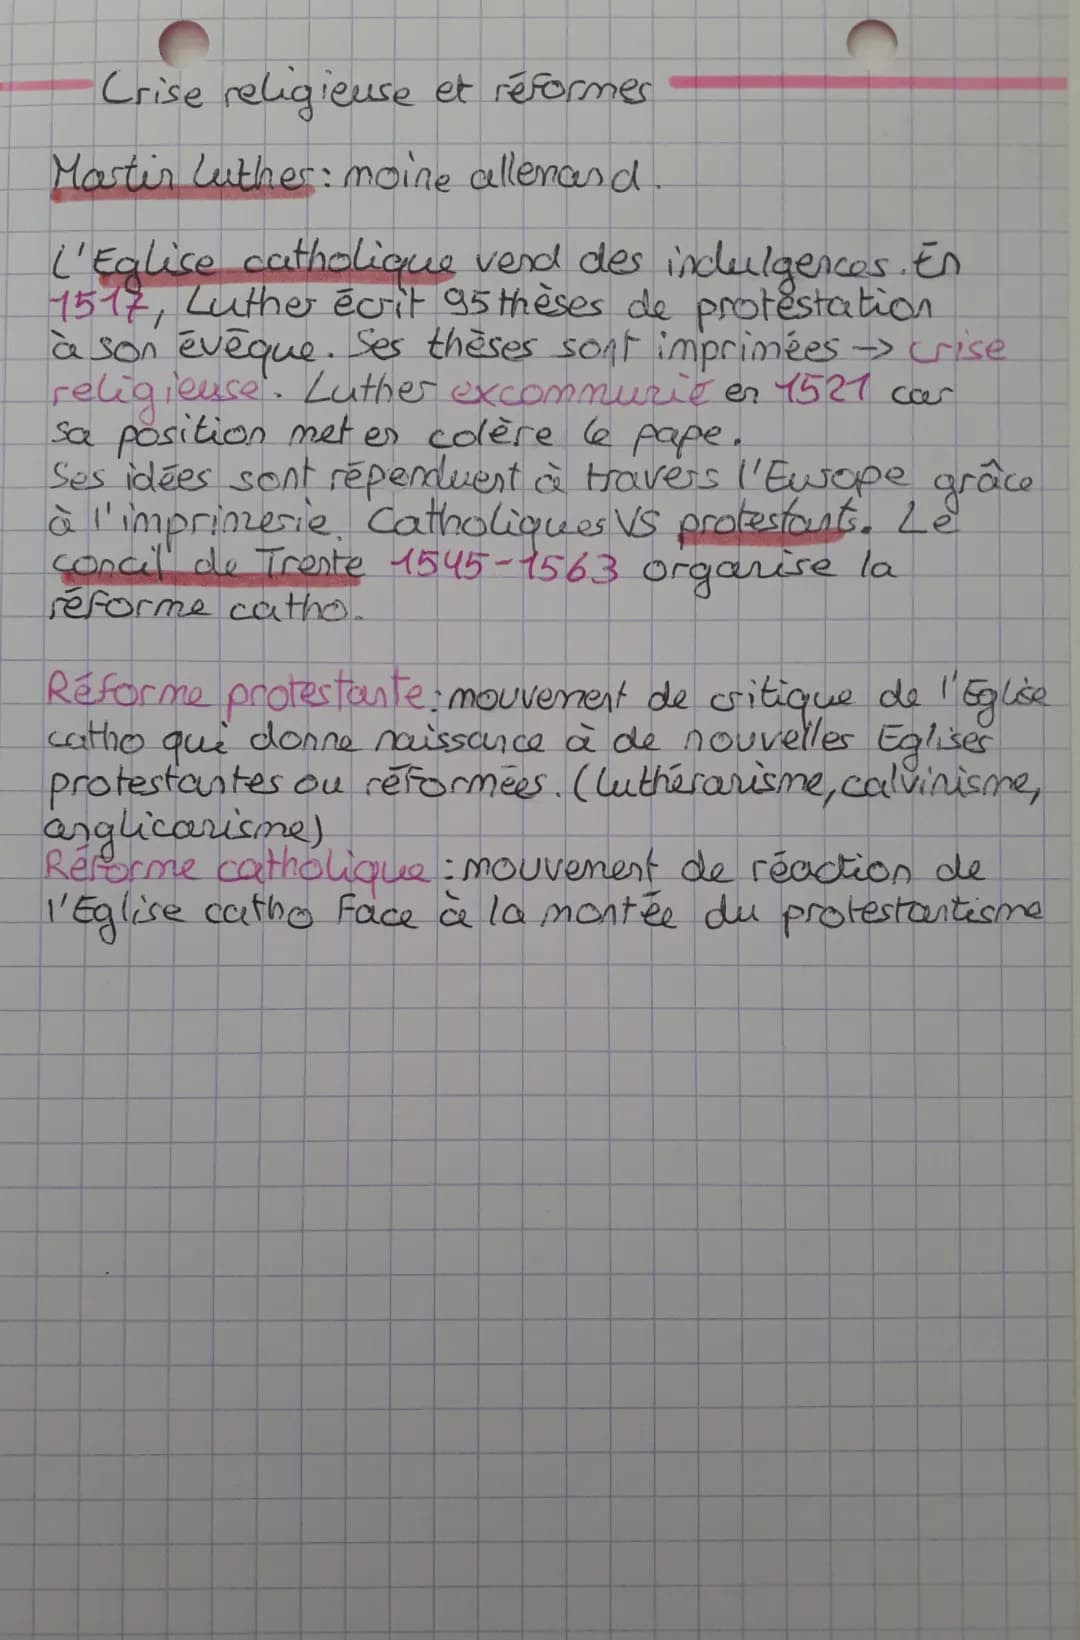 Crise religieuse et réformes
Martin Luther : moine allemand.
L'Eglise catholique vend des indulgences. En
1517, Luther écrit 95 thèses de protestation
à son évêque. Ses thèses sont imprimées → crise
religieuse. Luther excommunié en 1521 car
sa position met en colère le pape.
Ses idées sont répenduent à travers l'Europe grâce
à l'imprimerie. Catholiques VS protestants. Le
concil de Trente 1545-1563 organise la
réforme catho.
Réforme protestante : mouvement de critique de l'Eglise
catho qui donne naissance à de nouvelles Eglises
protestantes ou réformées. (luthéranisme, calvinisme,
anglicanisme)
Réforme catholique : mouvement de réaction de
l'Eglise catho face à la montée du protestantisme